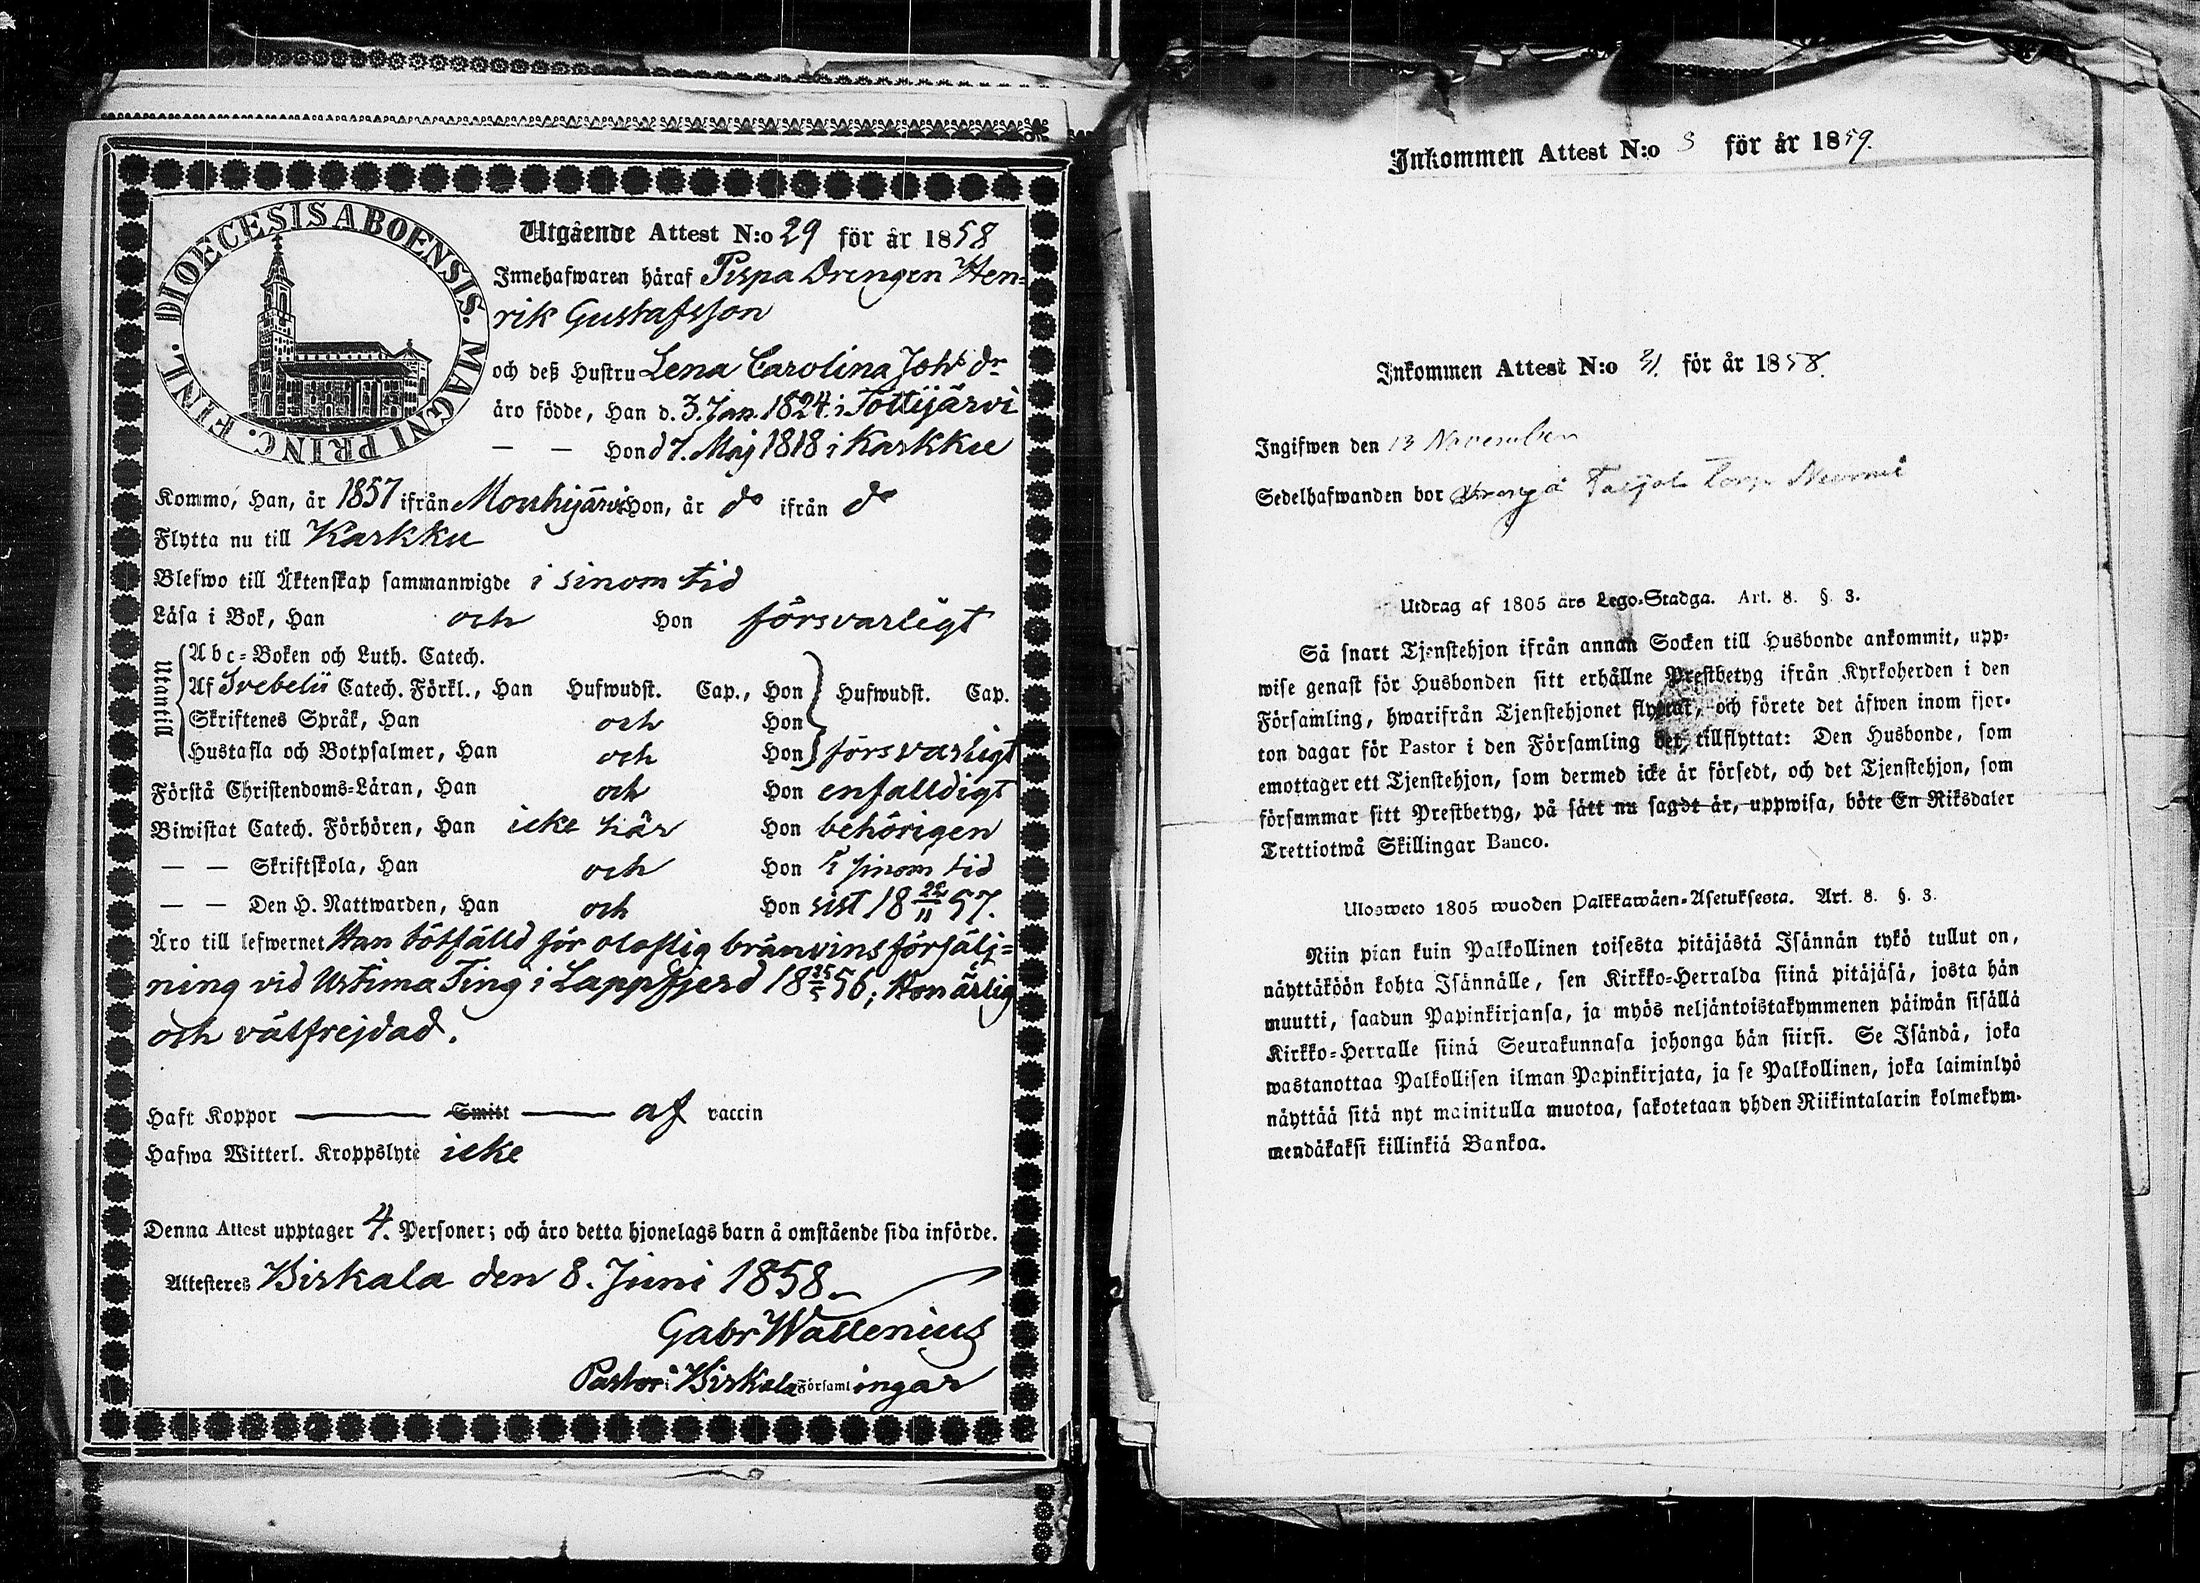 DIOECESIS ABOENSIS. MAGNI PRINC. FINL.
Utgående Attest N:o 29 för år 1858
Innehafwaren häraf Pispa Drengen Hen=
rik Gustafsson
och deß Hustru Lena Carolina Johs dr
äro födde, Han d. 3. Jan. 1824. i Tottijärvi
— — Hon d 7. Maj 1818 i Karkku
Kommo, Han, år 1857 ifrån Mouhijärvi Hon, år do ifrån do
Flytta nu till Karkku
Blefwo till Äktenskap sammanwigde i sinom tid
Läsa i Bok, Han och Hon försvarligt
Utantill
Abc=Boken och Luth. Catech.
Af Svebelii Catech. Förkl., Han Hufwudst. Cap., Hon Hufwudst. Cap.
Skriftenes Språk, Han och Hon
Hustafla och Botpsalmer, Han och Hon försvarligt
Förstå Christendoms=Läran, Han och Hon enfalldigt
Biwistat Catech. Förhören, Han icke här Hon behörigen
— — Skriftskola, Han och Hon i sinom tid
— — Den H. Nattwarden, Han och Hon sist 18 22/11 57.
Äro till lefwernet Han bötfälld för oloflig bränvins försälj=
ning vid Urtima Ting i Lappfjerd 18 25/5 56; Hon ärlig
och välfrejdad.
Haft Koppor ——— Smitt ——— af vaccin
Hafwa Witterl. Kroppslyte icke
Denna Attest upptager 4. Personer; och äro detta hjonelags barn å omstående sida införde.
Attesteres Birkala den 8. Juni 1858.
Gabr Wallenius
Pastor i Birkala Församlingar
Inkommen Attest N:o 3 för år 1859.
Inkommen Attest N:o 31. för år 1858.
Ingifwen den 13 November
Sedelhafwanden bor Torp Nurmi
Utdrag af 1805 års Lego=Stadga. Art. 8. §. 3.
Så snart Tjenstehjon ifrån annan Socken till Husbonde ankommit, upp=
wise genast för Husbonden sitt erhållne Prestbetyg ifrån Kyrkoherden i den
Församling, hwarifrån Tjenstehjonet flyttat, och förete det äfwen inom fjor=
ton dagar för Pastor i den Församling det tillflyttat: Den Husbonde, som
emottager ett Tjenstehjon, som dermed icke är försedt, och det Tjenstehjon, som
försummar sitt Prestbetyg, på sätt nu sagdt är, uppwisa, böte En Riksdaler
Trettiotwå Skillingar Banco.
Ulosweto 1805 wuoden Palkkawäen=Asetuksesta. Art. 8. §. 3.
Niin pian kuin Palkollinen toisesta pitäjästä Isännän tykö tullut on,
näyttäköön kohta Isännälle, sen Kirkko=Herralda siinä pitäjäsä, josta hän
muutti, saadun Papinkirjansa, ja myös neljäntoistakymmenen päiwän sisällä
Kirkko=Herralle siinä Seurakunnasa johonga hän siirsi. Se Isändä, joka
wastanottaa Palkollisen ilman Papinkirjata, ja se Palkollinen, joka laiminlyö
näyttää sitä nyt mainitulla muotoa, sakotetaan yhden Riikintalarin kolmekym=
mendäkaksi killinkiä Bankoa.